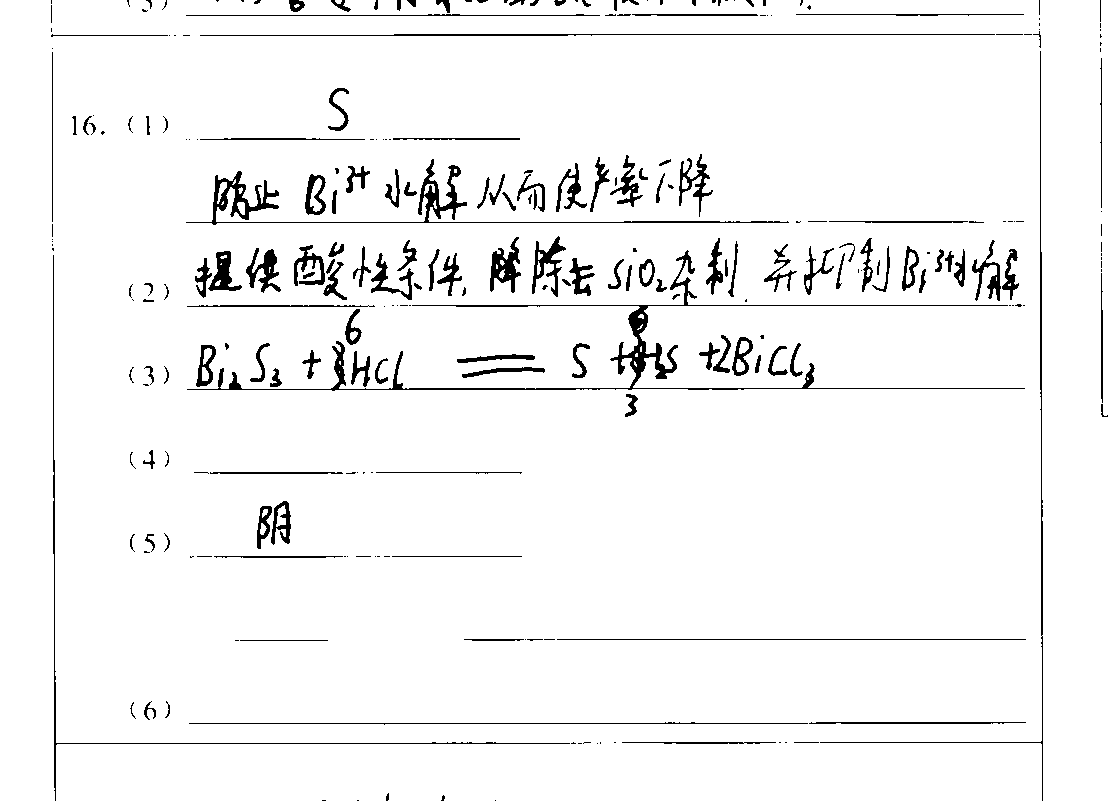 16. (1) S
防止 Bi³⁺ 水解 从而使产率下降
(2) 提供酸性条件, 降除去 SiO₂杂制, 并抑制Bi³⁺水解
(3) Bi₂S₃ + 6HCl == S + 2BiCl₃
(4)
(5) 阴
(6)